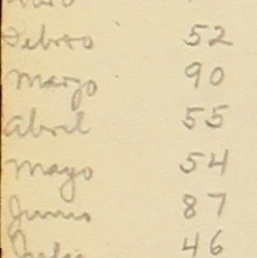 Febrero 52
Marzo 90
Abril 55
Mayo 54
Junio 87
Julio 46